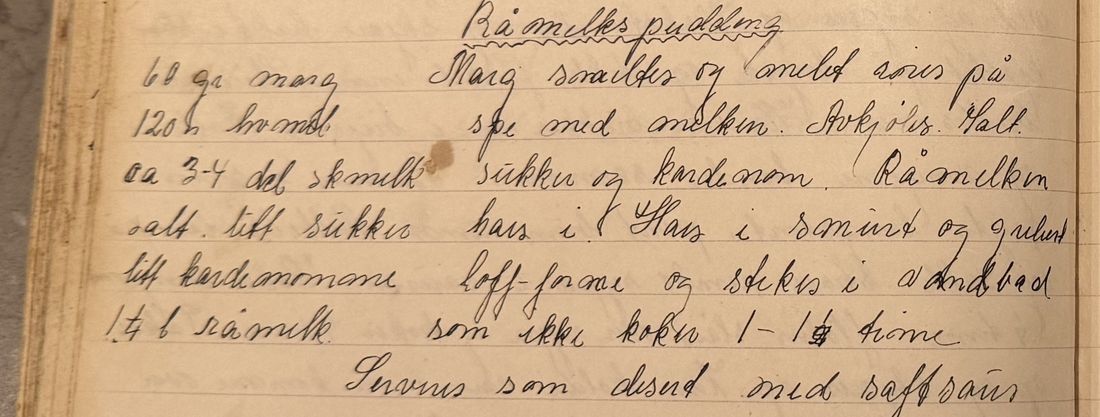 Råmelkspudding
60 gr marg Marg smeltes og melet røres på
120 " hvmel spe med melken. Avkjøles. Salt.
ca 3-4 del skmelk sukker og kardemom. Råmelken
salt. litt sukker haes i. Haes i smurt og
litt kardemomme loff-forme og stekes i vandbad
1¼ l råmelk som ikke koker 1 - 1½ time
Serveres som desert med saftsaus